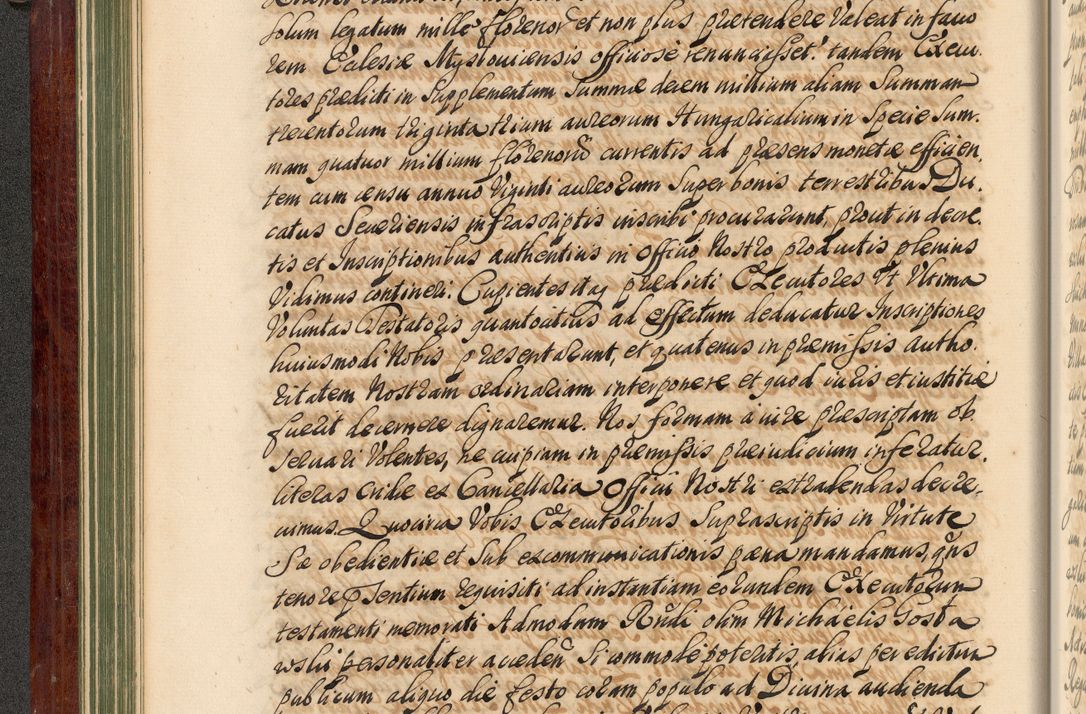 solum legatum mille florenor̃ et non plus prætendere Valeat in favo
rem Ecclesiæ Mysloviciensis officiose renunciasset: tandem Execu.
tores prædicti in Supplementum Summæ decem millium aliam Summam
trecentorum triginta trium aureorum Hungaricalium in Specie Sum.
mam quatuor millium florenorũ currentis ad præsens monetæ efficien.
tem cum censu annuo Viginti aureorum Super bonis terrestribus Du.
catus Severiensis infrascriptis inscribi procurarunt, prout in decre.
tis et Inscriptionibus authenticis in Officio Nostro productis plenius
Vidimus contineri. Cupientes itaq prædicti Executores Vt Vltima
Voluntas Testatoris quantocitius ad effectum deducatur Inscriptiones
huiusmodi Nobis præsentarunt, et quatenus in præmissis autho.
ritatem Nostram ordinariam interponere et quod iuris et iustitiæ
fuerit decernere dignaremur. Nos formam a iure præscriptam ob.
servari Volentes, ne cuipiam in præmissis præiudicium inferatur.
literas Cridæ ex Cancellaria Officii Nostri extradendas decre.
vimus. Quocirca Vobis Executoribus Suprascriptis in Virtute
Sæ obedientiæ et Sub excommunicationis pæna mandamus, qũs
tenore pSentium requisiti ad instantiam eorundem Executorum
testamenti memorati Admodum Rũdi olim Michaelis Gosta
wski personaliter acceden̄ Si commode poteritis, alias per edictum
publicum aliquo die festo coram populo ad Divina audienda